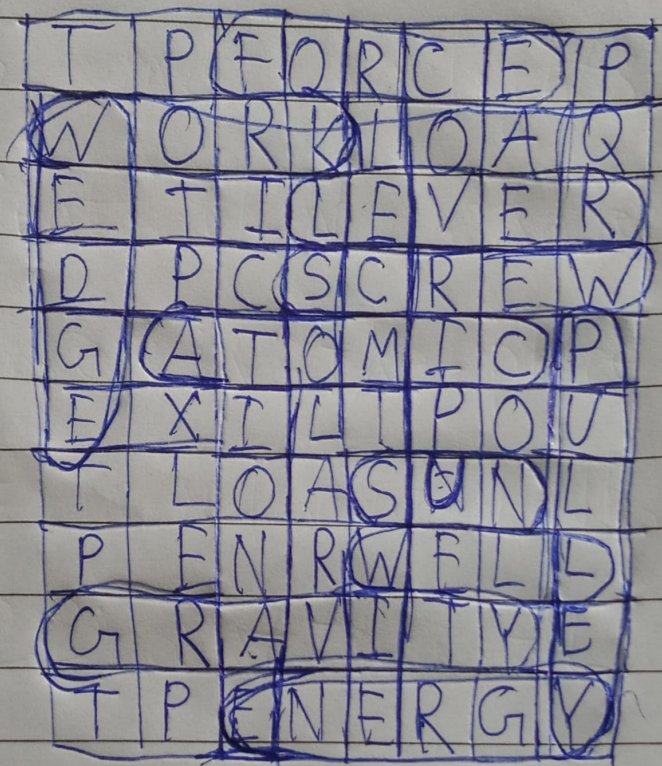 T P F O R C E P
W O R K I O A Q
E T I L E V E R
D P C S C R E W
G A T O M I C P
E X I L I P O U
T L O A S U N L
P E N R W E L L
G R A V I T Y E
T P E N E R G Y